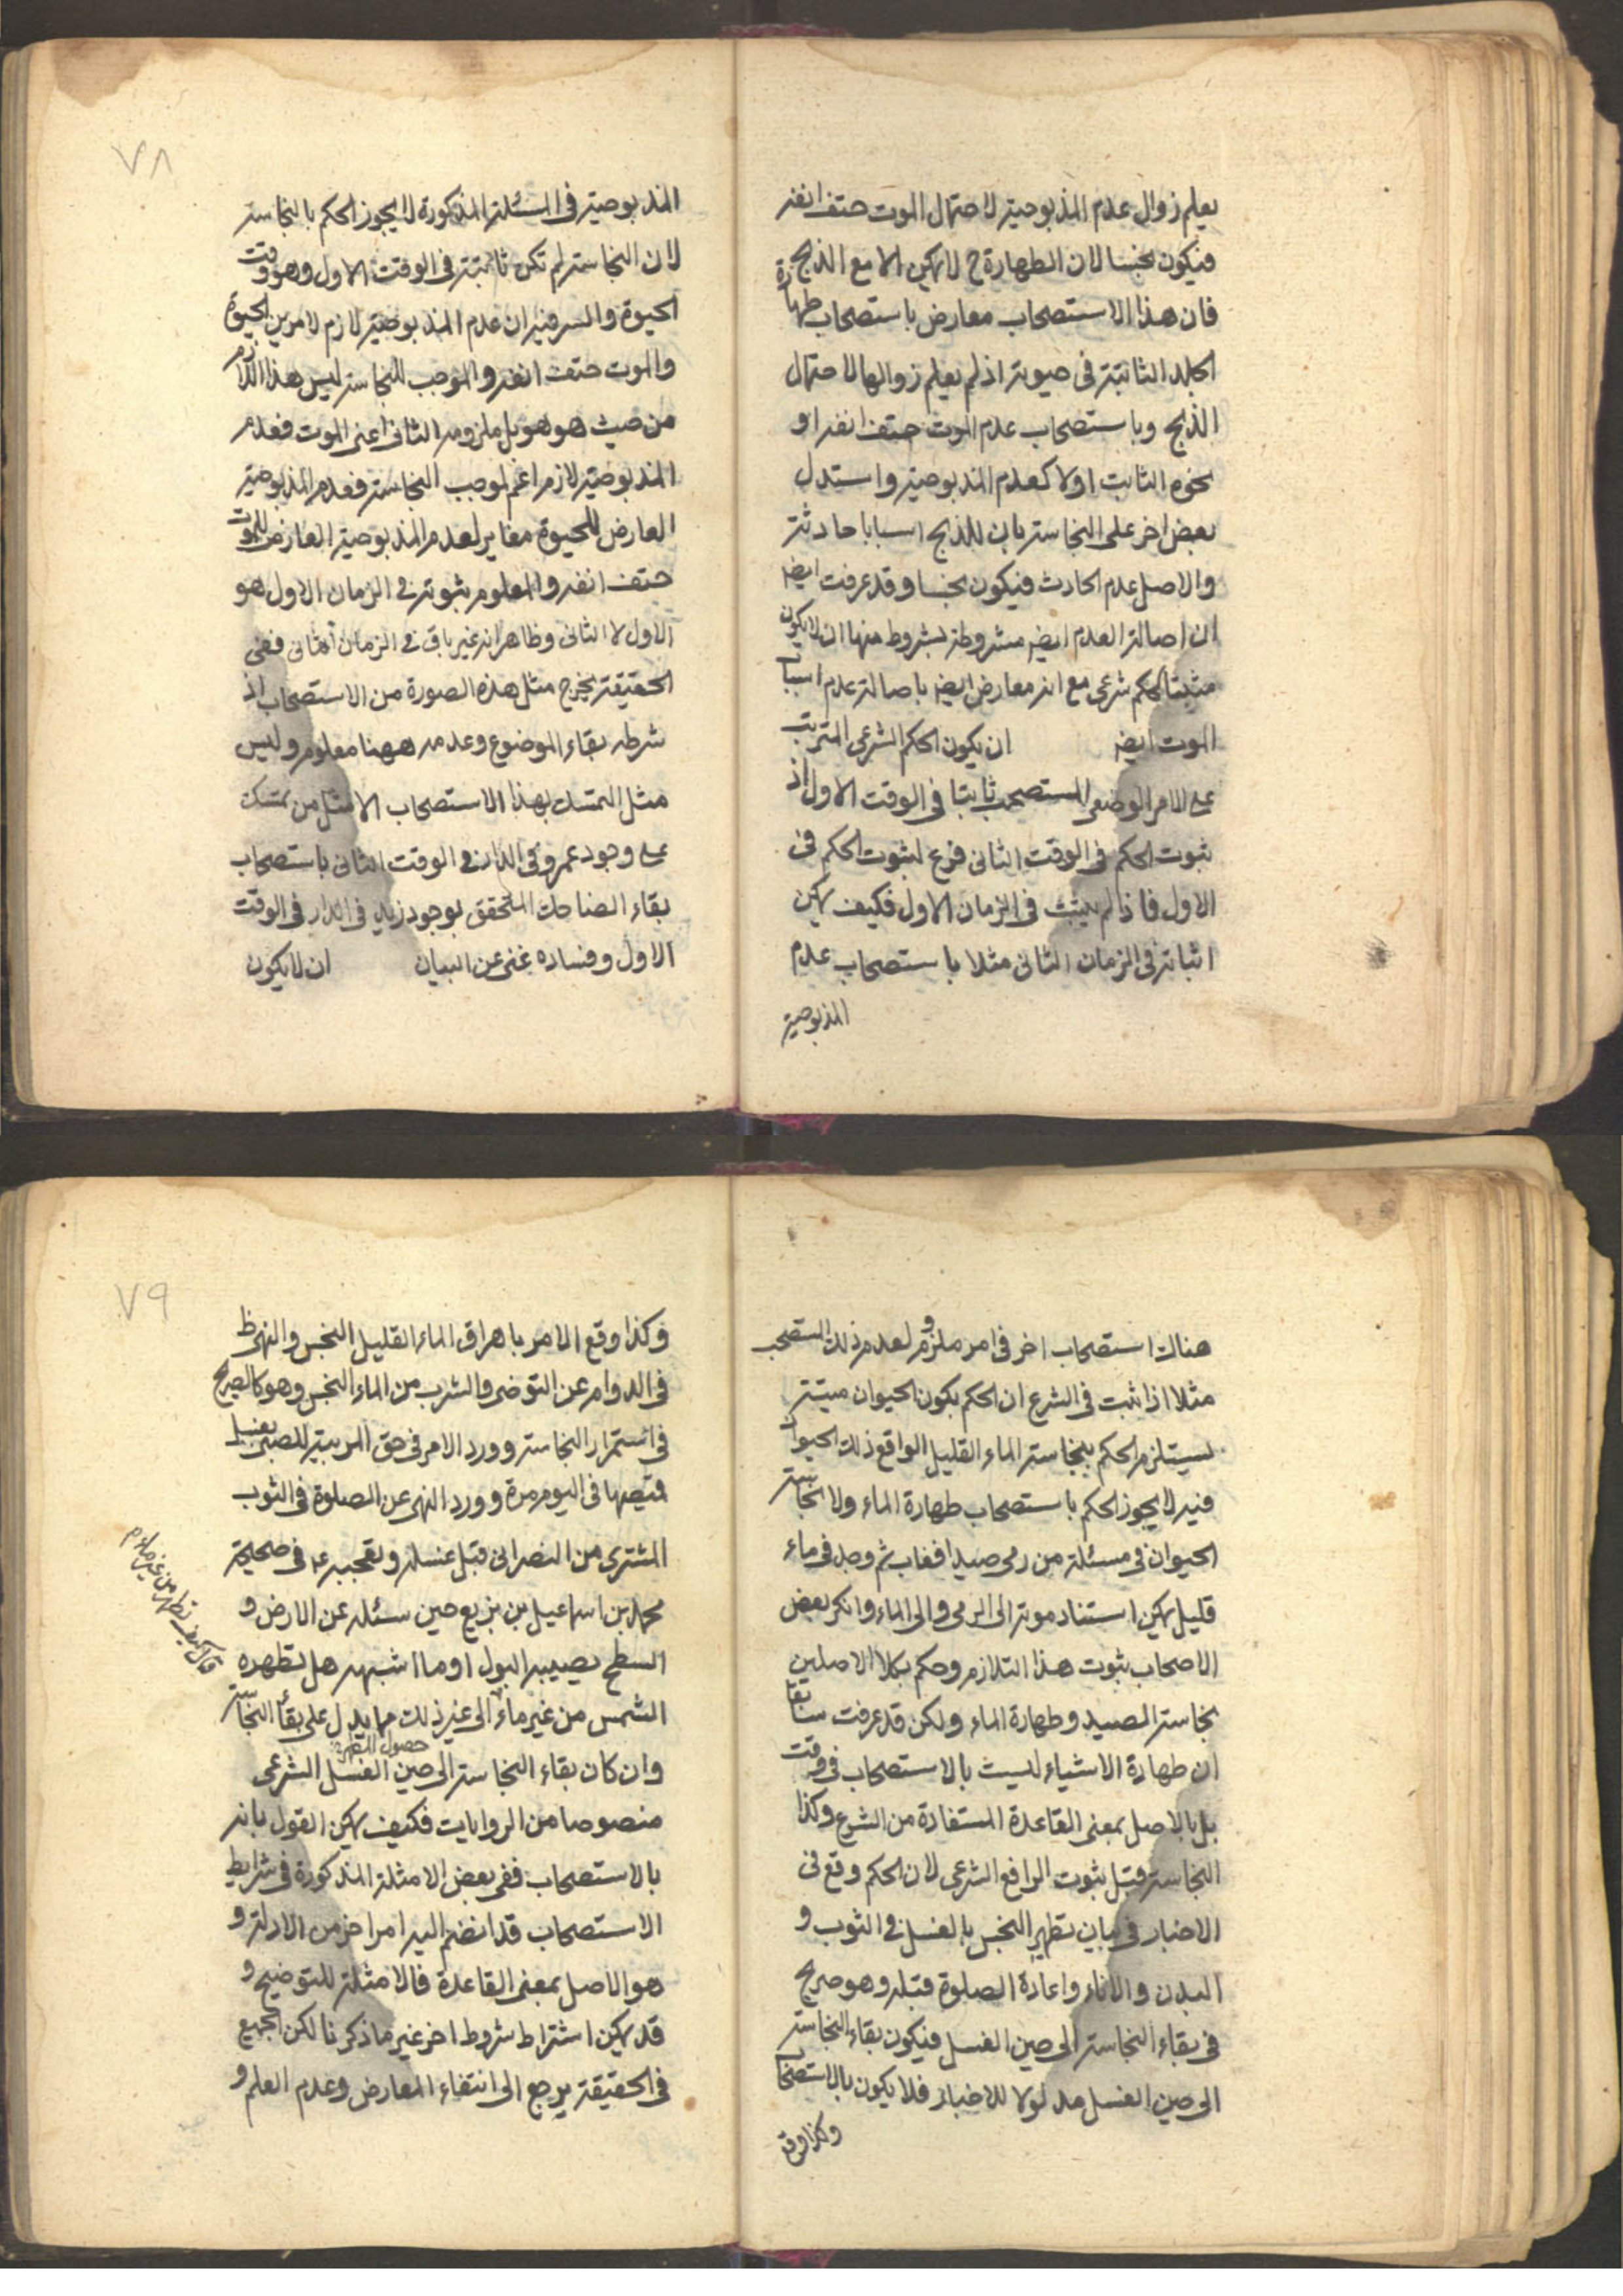 يعلم زوال عدم المذبوحية لاحتمال الموت حتف انفه
فيكون نجسا لان الطهارة ح لا يمكن الا مع الذبح
فان هذا الاستصحاب معارض باستصحاب طهارة
الجلد الثابتة في حيوته اذ لم يعلم زوالها لاحتمال
الذبح وباستصحاب عدم الموت حتف انفه او
نحوه الثابت اولا كعدم المذبوحية واستدل
بعض اخر على النجاسة بان للذبح اسبابا حادثة
والاصل عدم الحادث فيكون نجسا وقد عرفت ايضه
ان اصالة العدم ايضه مشروطة بشروط منها ان لا يكون
مثبتا لحكم شرعى مع انه معارض ايضه باصالة عدم اسباب
الموت ايضه ان يكون الحكم الشرعى المترتب
على الامر الوضعى المستصحب ثابتا في الوقت الاول اذ
ثبوت الحكم في الوقت الثانى فرع لثبوت الحكم فى
الاول فاذا لم يثبت فى الزمان الاول فكيف يمكن
اثباته فى الزمان الثانى مثلا باستصحاب عدم
المذبوحية
٧٨
المذبوحية فى المسئلة المذكورة لا يجوز الحكم بالنجاسة
لان النجاسة لم تكن ثابتة فى الوقت الاول وهو وقت
الحيوة والسر فيه ان عدم المذبوحية لازم لامرين الحيوة
والموت حتف انفه والموجب للنجاسة ليس هذا اللازم
من حيث هو هو بل ملزومه الثانى اعنى الموت فعدم
المذبوحية لازم اعم لموجب النجاسة فعدم المذبوحية
العارض للحيوة مغاير لعدم المذبوحية العارض للموت
حتف انفه والمعلوم ثبوته فى الزمان الاول هو
الاول لا الثانى وظاهر انه غير باق فى الزمان الثانى ففى
الحقيقة يخرج مثل هذه الصورة من الاستصحاب اذ
شرطه بقاء الموضوع وعدمه ههنا معلوم وليس
مثل التمسك بهذا الاستصحاب الا مثل من تمسك
على وجود عمرو فى الدار فى الوقت الثانى باستصحاب
بقاء الضاحك المتحقق بوجود زيد فى الدار فى الوقت
الاول وفساده غنى عن البيان ان لا يكون
هناك استصحاب اخر فى امر ملزوم لعدم ذلك المستصحب
مثلا اذا ثبت فى الشرع ان الحكم بكون الحيوان ميتة
يستلزم الحكم بنجاسة الماء القليل الواقع ذلك الحيوان
فيه لا يجوز الحكم باستصحاب طهارة الماء ولا نجاسة
الحيوان فى مسئلة من رمى صيدا فغاب ثم وجد فى ماء
قليل يمكن استناد موته الى الرمى والى الماء وانكر بعض
الاصحاب ثبوت هذا التلازم وحكم بكلا الاصلين
نجاسة الصيد وطهارة الماء ولكن قد عرفت سابقا
ان طهارة الاشياء ليست بالاستصحاب فى وقت
بل بالاصل بمعنى القاعدة المستفادة من الشرع وكذا
النجاسة قبل ثبوت الرافع الشرعى لان الحكم وقع فى
الاخبار فى بيان تطهير النجس بالغسل فى الثوب و
البدن والاناء واعادة الصلوة قبله وهو صريح
فى بقاء النجاسة الى حين الغسل فيكون بقاء النجاسة
الى حين الغسل مدلولا للاخبار فلا يكون بالاستصحاب
وكذا وقع
٧٩
وكذا وقع الامر باهراق الماء القليل النجس والنهى ظ
فى الدوام عن التوضى والشرب من الماء النجس وهو كالصريح
فى استمرار النجاسة وورد الامر فى حق المربية للصبى بغسل
قميصها فى اليوم مرة وورد النهى عن الصلوة فى الثوب
المشترى من النصرانى قبل غسله وتعجبه ع فى صحيحة
محمد بن اسماعيل بن بزيع حين سئله عن الارض و
السطح يصيبه البول او ما اشبهه هل تطهره
الشمس من غير ماء الى غير ذلك مما يدل على بقاء النجاسة
قال كيف تطهر من غير ماء
وان كان بقاء النجاسة الى حين الغسل الشرعى
منصوصا من الروايات فكيف يمكن القول بانه
بالاستصحاب ففى بعض الامثلة المذكورة فى شرايط
الاستصحاب قد انضم اليه امر اخر من الادلة و
هو الاصل بمعنى القاعدة فالامثلة للتوضيح و
قد يمكن اشتراط شروط اخر غير ما ذكرنا لكن الجميع
فى الحقيقة يرجع الى انتفاء المعارض وعدم العلم و